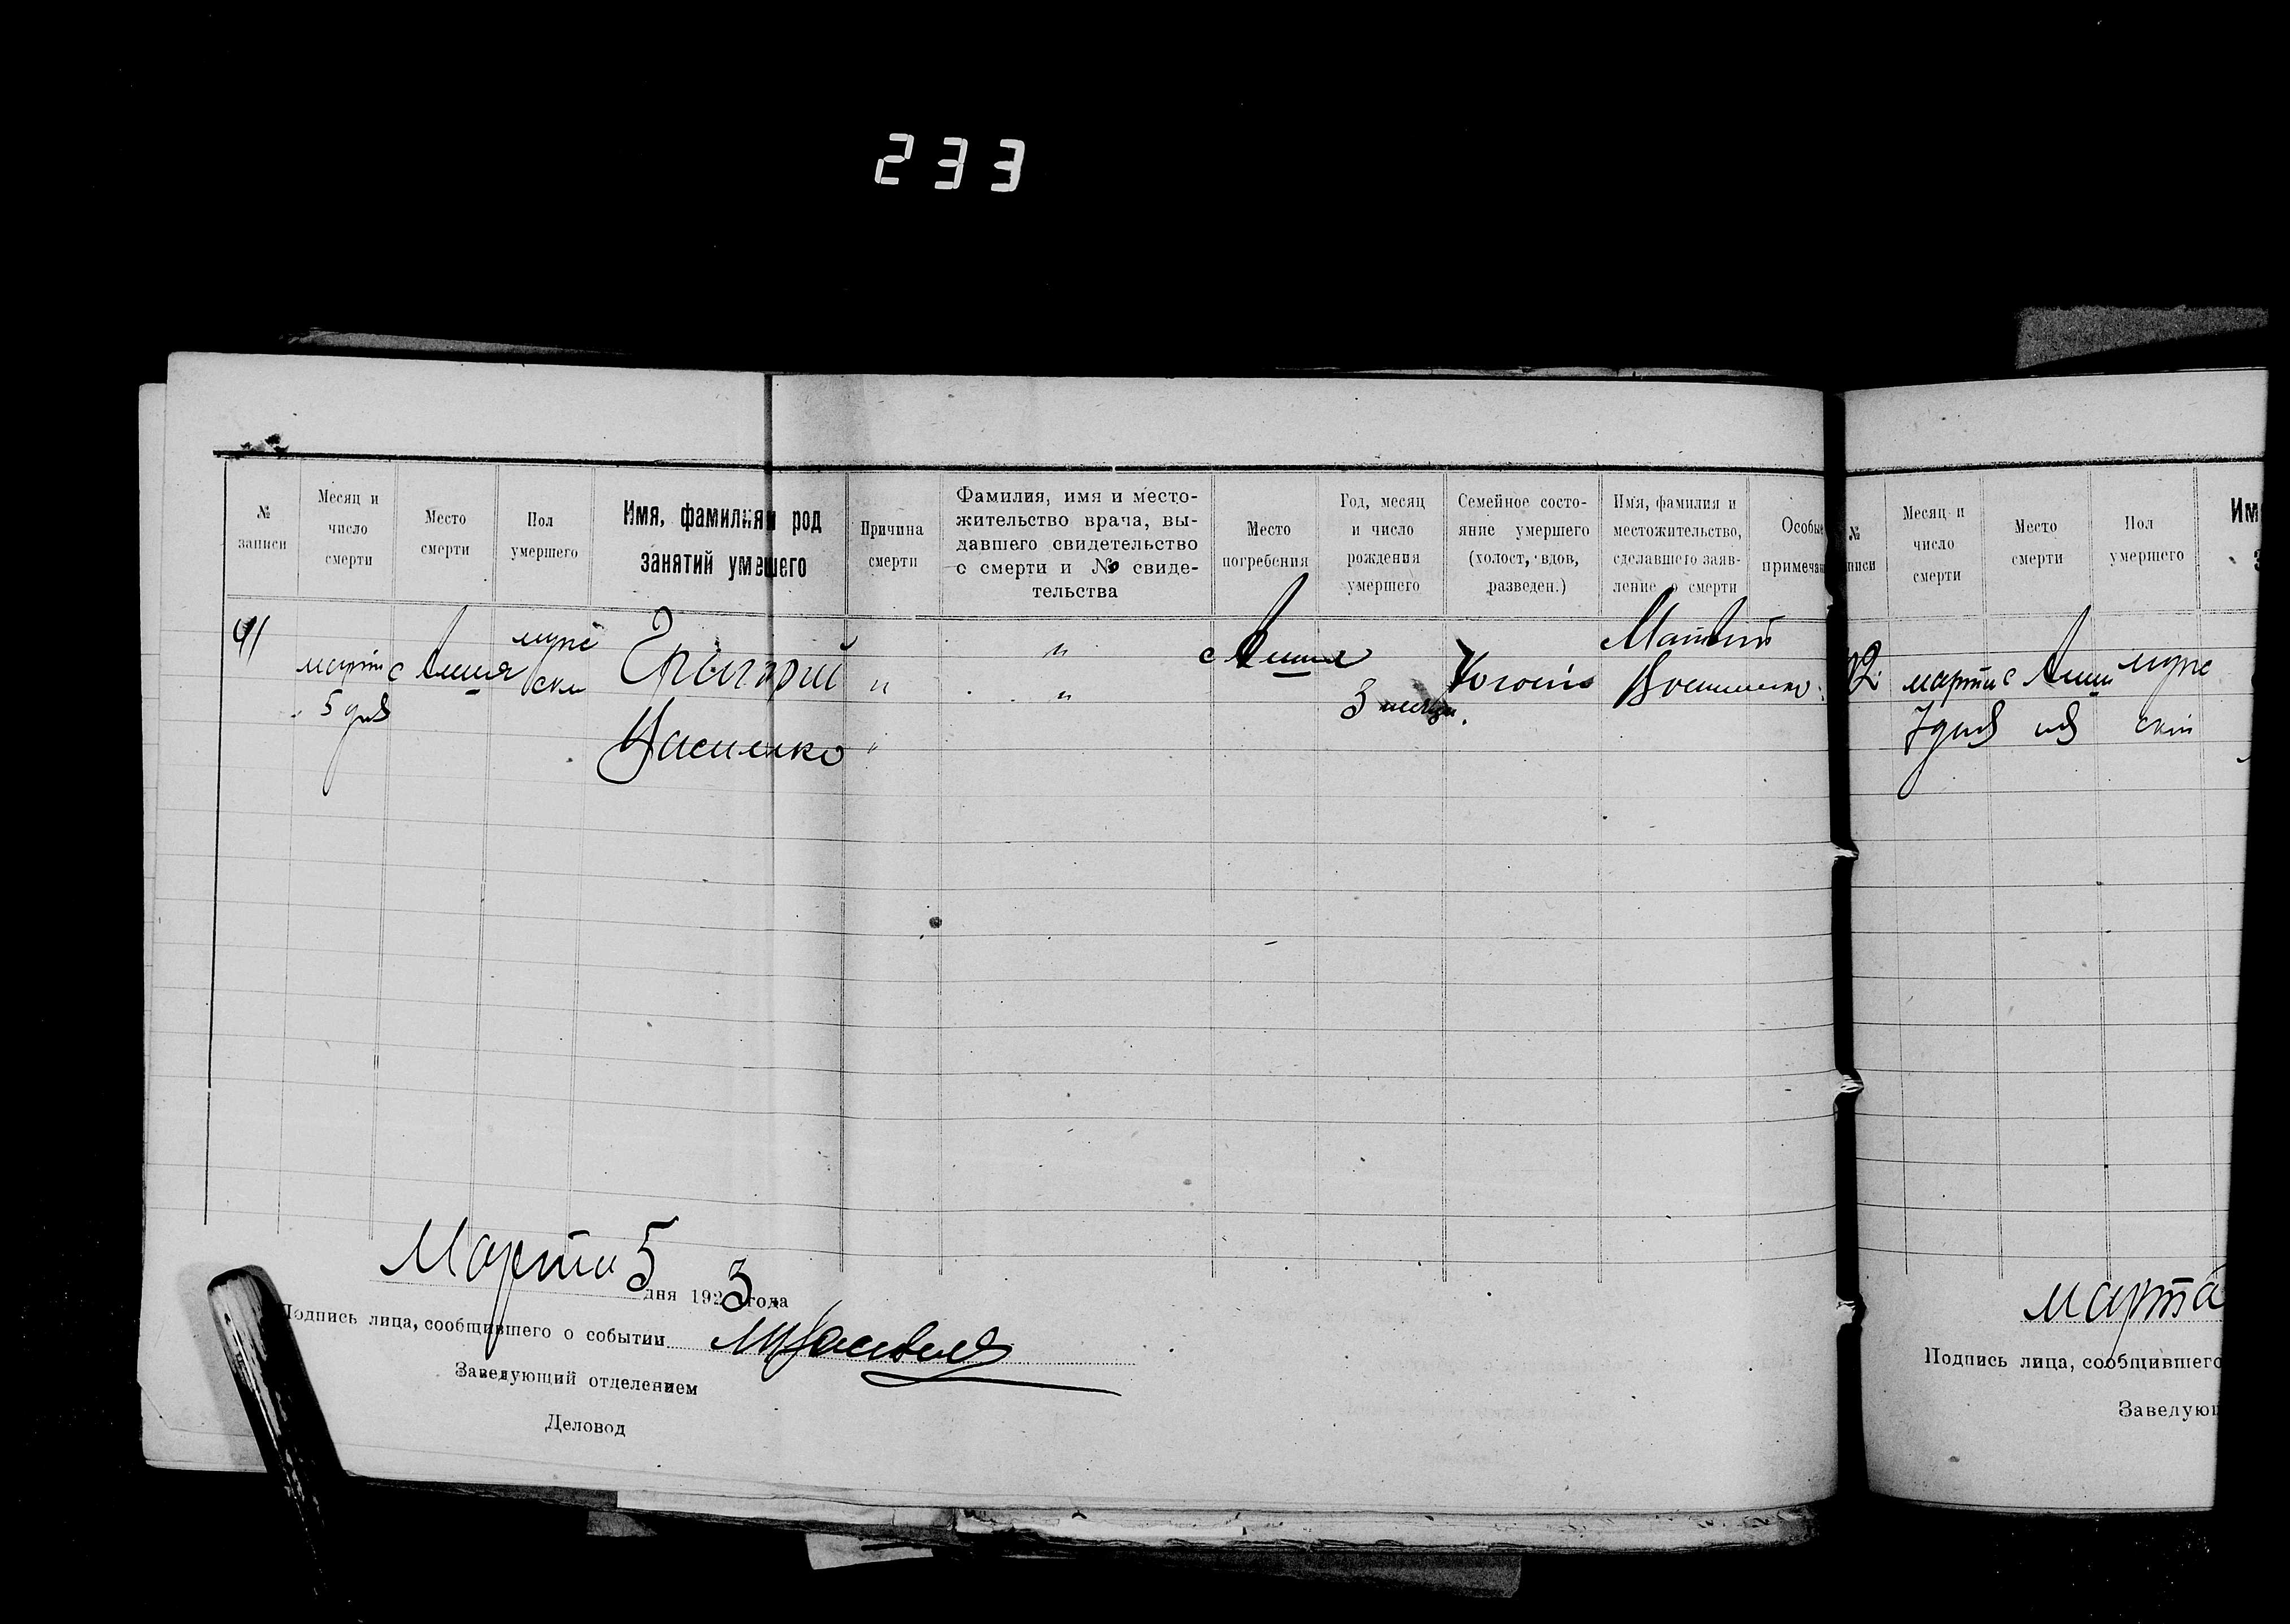 233
№ записи
Месяц и число смерти
Место смерти
Пол умершего
Имя, фамилия и род занятий умешего
Причина смерти
Фамилия, имя и место-
жительство врача, вы-
давшего свидетельство
о смерти и № свиде-
тельства
Место погребения
Год, месяц и число рождения умершего
Семейное состо-
яние умершего
(холост, вдов,
разведен.)
Имя, фамилия и
местожительство,
сделавшего заяв-
ление о смерти
Особые
примечан
41
март
5 дня
с
муже
ски
Григорий
Василько
"
"
"
"
с
3 месяц.
Холост
Матвий
Марта 5 дня 1923 года
Подпись лица, сообщившего о событии
Заведующий отделением
Деловод
№
писи
Месяц и
число
смерти
Место
смерти
Пол
умершего
Им
з
2
марта с
7 дня
муже
ский
марта
Подпись лица, сообщившего
Заведующ